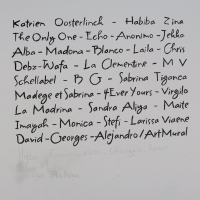 Katrien Oosterlinck - Habiba Zina
The Only One - Echo - Anonimo - Jekka
Alba - Madona - Blanco - Laila - Chris
Debz - Wafa - La Clementine - M V
Schellabel - B G - Sabrina Tiganca
Madege et Sabrina - 4Ever Yours - Virgilo
La Madrina - Sandra Aliga - Maite
Imayah - Monica - Stefi - Larissa Viaene
David - Georges - Alejandro/Art Mural